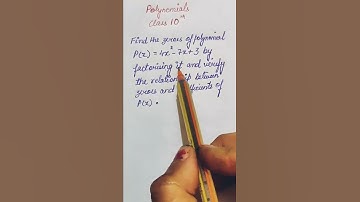 Polynomials
Class 10th
Find the zeroes of polynomial
P(x) = 4x² - 7x + 3 by
factorising it and verify
the relationship between
zeroes and coefficients of
P(x).